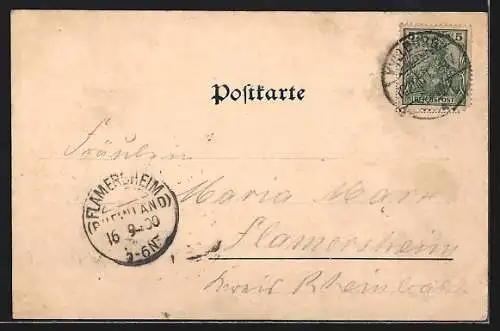 5 5
REICHSPOST
Postkarte
Fräulein
Maria
Flamersheim
Kreis Rheinbach
FLAMERSHEIM
(RHEINLAND)
16 9 00
5-6N